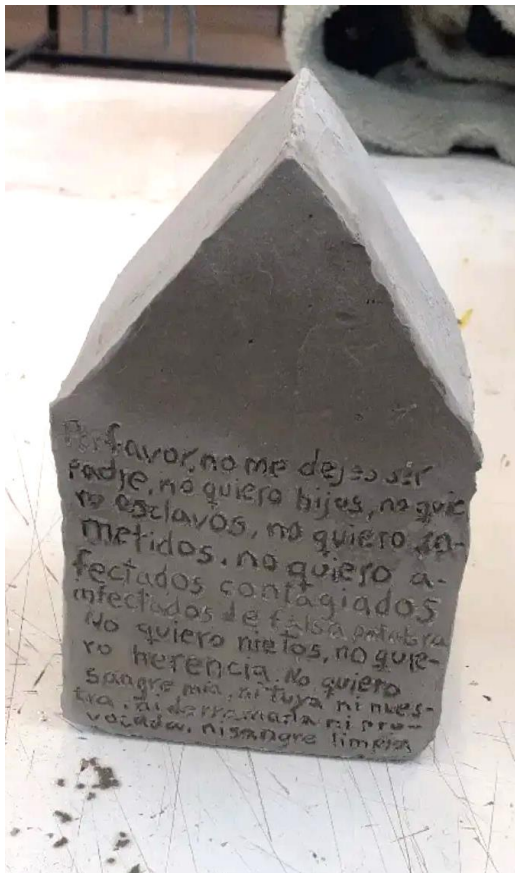 Por favor, no me dejes ser
Padre, no quiero hijos, no quie
ro esclavos, no quiero so-
metidos. no quiero a-
fectados contagiados
infectados de falsa palabra
No quiero nietos, no quie-
ro herencia. No quiero
sangre mia, ni tuya ni nues-
tra, ni derramada ni pro-
vocada, ni sangre limpia